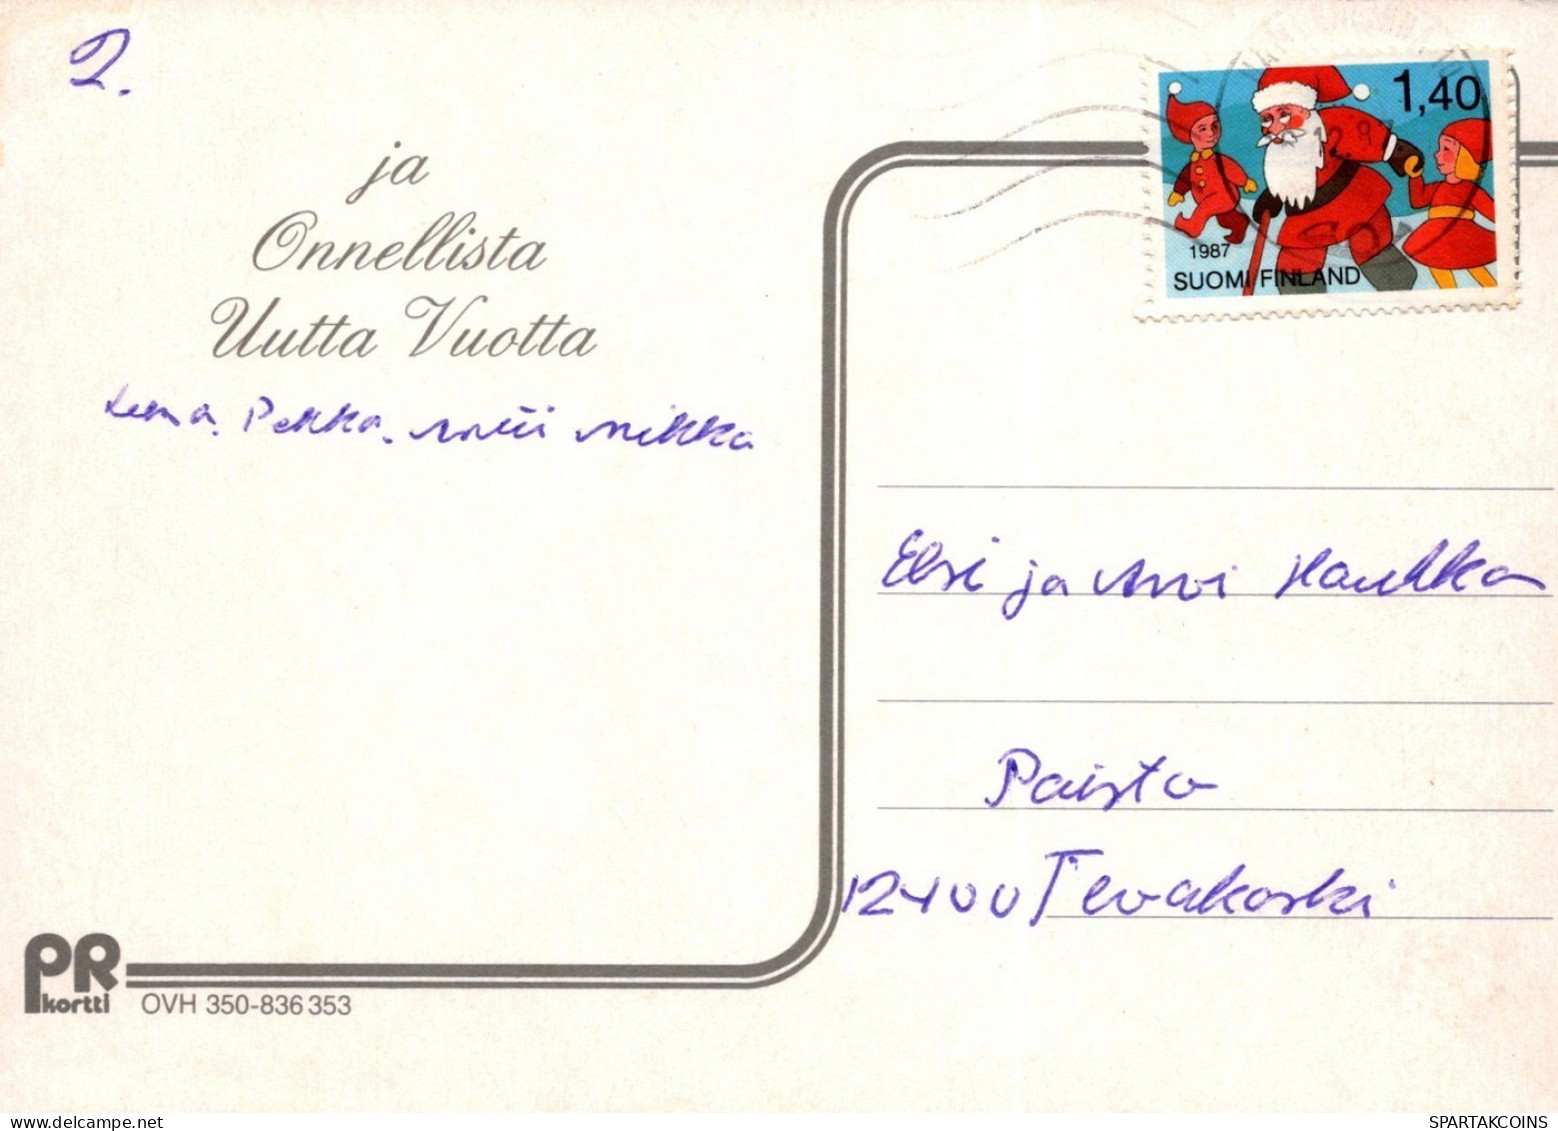 2.
ja
Onnellista
Uutta Vuotta
Leena. Pekka. Antti Mikka
1,40
1987
SUOMI FINLAND
Elsi ja Arvi Haukka
Paisto
12400 Tervakoski
PR
kortti
OVH 350-836 353
SPARTAKCOINS